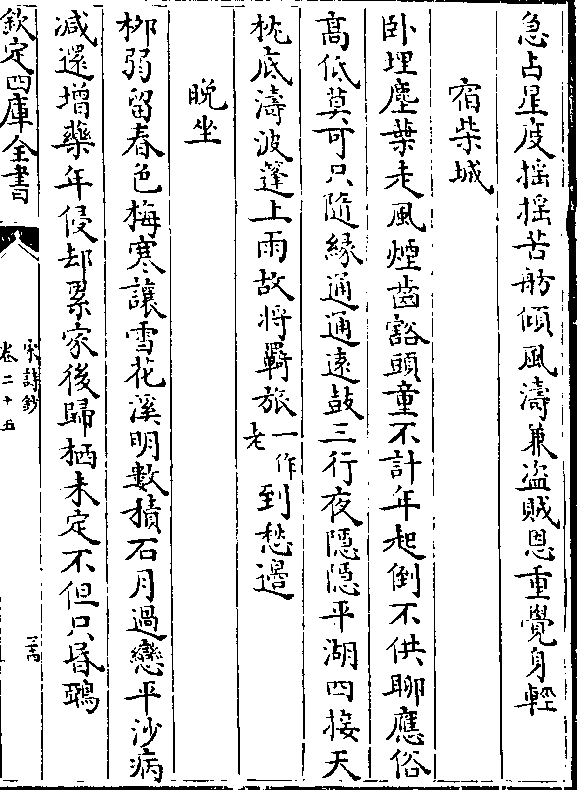 急占星度揺揺苦舫傾風濤兼盗賊恩重覺身輕
宿柴城
卧埋塵葉走風煙齒豁頭童不計年起倒不供聊應俗
髙低莫可只隨縁通通逺鼓三行夜隠隠平湖四接天
枕底濤波蓬上雨故将羇旅一作老到愁邉
晩坐
栁弱留春色梅寒讓雪花溪明數積石月過戀平沙病
減還增藥年侵却累家後歸栖未定不但只昏鵶
欽定四庫全書
宋詩鈔
卷二十五